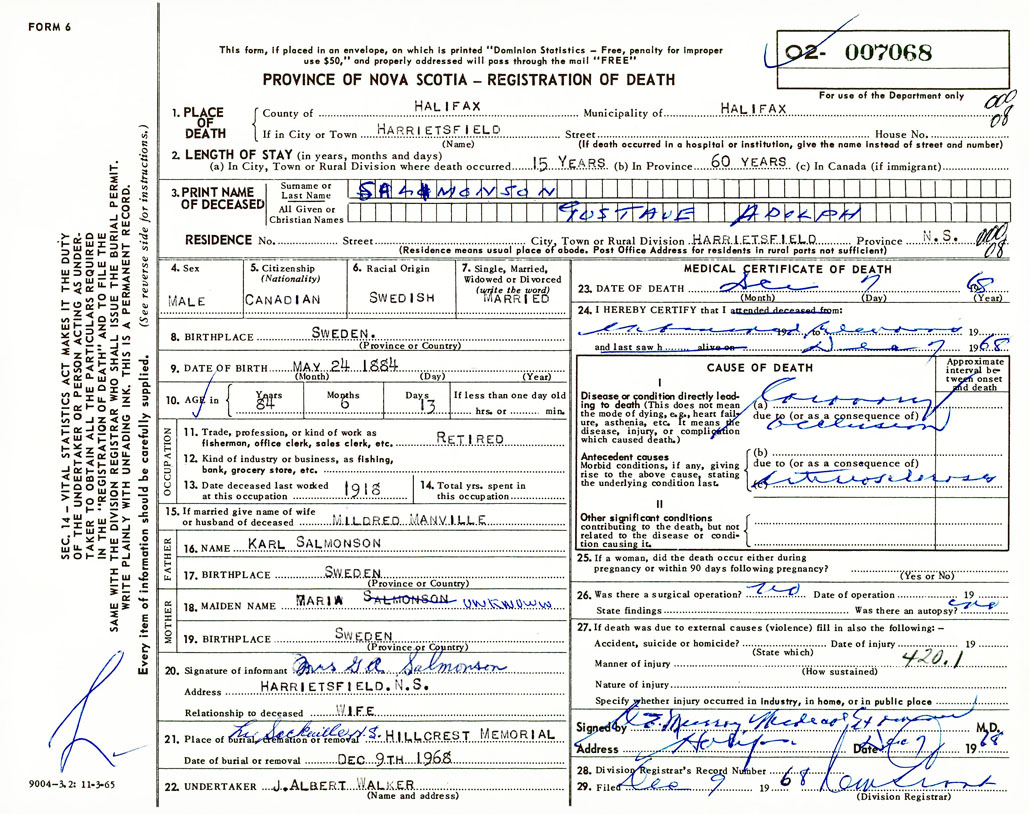 FORM 6
This form, if placed in an envelope, on which is printed "Dominion Statistics – Free, penalty for improper
use $50," and properly addressed will pass through the mail "FREE"
02- 007068
For use of the Department only
PROVINCE OF NOVA SCOTIA – REGISTRATION OF DEATH
000
08
1. PLACE OF DEATH
County of HALIFAX Municipality of HALIFAX
If in City or Town HARRIETSFIELD Street House No.
(Name) (If death occurred in a hospital or institution, give the name instead of street and number)
2. LENGTH OF STAY (in years, months and days)
(a) In City, Town or Rural Division where death occurred 15 YEARS (b) In Province 60 YEARS (c) In Canada (if immigrant)
3. PRINT NAME OF DECEASED
Surname or Last Name SALMONSON
All Given or Christian Names GUSTAVE ADOLPH
RESIDENCE No. Street City, Town or Rural Division HARRIETSFIELD Province N.S.
(Residence means usual place of abode. Post Office Address for residents in rural parts not sufficient)
000
08
4. Sex
MALE
5. Citizenship (Nationality)
CANADIAN
6. Racial Origin
SWEDISH
7. Single, Married, Widowed or Divorced (write the word)
MARRIED
8. BIRTHPLACE SWEDEN.
(Province or Country)
9. DATE OF BIRTH MAY 24 1884
(Month) (Day) (Year)
10. AGE in Years 84 Months 6 Days 13 If less than one day old hrs. or min.
OCCUPATION
11. Trade, profession, or kind of work as
fisherman, office clerk, sales clerk, etc. RETIRED
12. Kind of industry or business, as fishing,
bank, grocery store, etc.
13. Date deceased last worked
at this occupation 1918
14. Total yrs. spent in
this occupation
15. If married give name of wife
or husband of deceased MILDRED MANVILLE
FATHER
16. NAME KARL SALMONSON
17. BIRTHPLACE SWEDEN
(Province or Country)
MOTHER
18. MAIDEN NAME MARIA SALMONSON UNKNOWN
19. BIRTHPLACE SWEDEN
(Province or Country)
20. Signature of informant Mrs G A Salmonson
Address HARRIETSFIELD. N.S.
Relationship to deceased WIFE
21. Place of burial, cremation or removal Sackville N.S. HILLCREST MEMORIAL
Date of burial or removal DEC 9TH 1968
22. UNDERTAKER J. ALBERT WALKER
(Name and address)
MEDICAL CERTIFICATE OF DEATH
23. DATE OF DEATH Dec 7 68
(Month) (Day) (Year)
24. I HEREBY CERTIFY that I attended deceased from:
19 19
and last saw h alive on Dec 7 1968
CAUSE OF DEATH
Approximate interval between onset and death
I
Disease or condition directly leading
to death (This does not mean
the mode of dying, e.g., heart failure,
asthenia, etc. It means the
disease, injury, or complication
which caused death.)
(a) Coronary
due to (or as a consequence of)
occlusion
Antecedent causes
Morbid conditions, if any, giving
rise to the above cause, stating
the underlying condition last.
(b)
due to (or as a consequence of)
(c) Arteriosclerosis
II
Other significant conditions
contributing to the death, but not
related to the disease or condition
causing it.
25. If a woman, did the death occur either during
pregnancy or within 90 days following pregnancy?
(Yes or No)
26. Was there a surgical operation? no Date of operation 19
State findings Was there an autopsy? no
27. If death was due to external causes (violence) fill in also the following: –
Accident, suicide or homicide? Date of injury 19
(State which)
Manner of injury 420.1
(How sustained)
Nature of injury
Specify whether injury occurred in Industry, in home, or in public place
Signed by Murray Medical Examiner M.D.
Address Halifax Date Dec 7 1968
28. Division Registrar's Record Number
29. Filed Dec 9 1968
(Division Registrar)
SEC. 14 – VITAL STATISTICS ACT MAKES IT THE DUTY
OF THE UNDERTAKER OR PERSON ACTING AS UNDER-
TAKER TO OBTAIN ALL THE PARTICULARS REQUIRED
IN THE "REGISTRATION OF DEATH" AND TO FILE THE
SAME WITH THE DIVISION REGISTRAR WHO SHALL ISSUE THE BURIAL PERMIT.
WRITE PLAINLY WITH UNFADING INK. THIS IS A PERMANENT RECORD.
Every item of information should be carefully supplied. (See reverse side for instructions.)
9004–3.2: 11-3-65